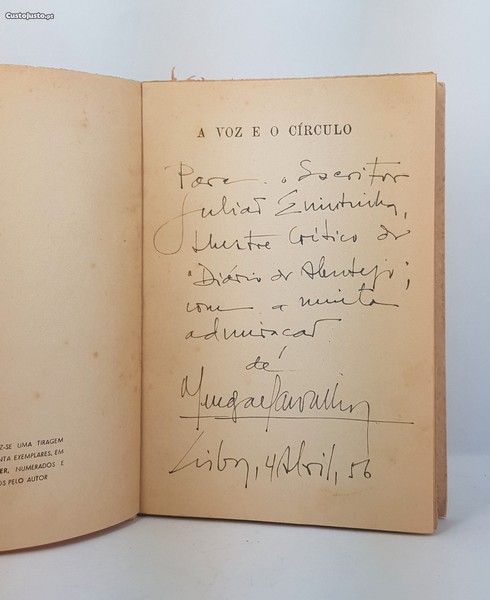 CustoJusto.pt
Z-SE UMA TIRAGEM
NTA EXEMPLARES, EM
ER, NUMERADOS E
OS PELO AUTOR
A VOZ E O CÍRCULO
Para o Escritor
Julião Quintinha,
Ilustre Crítico do
"Diário do Alentejo",
com a muita
admiração
de
Carvalho
Lisboa, 4 Abril, 56